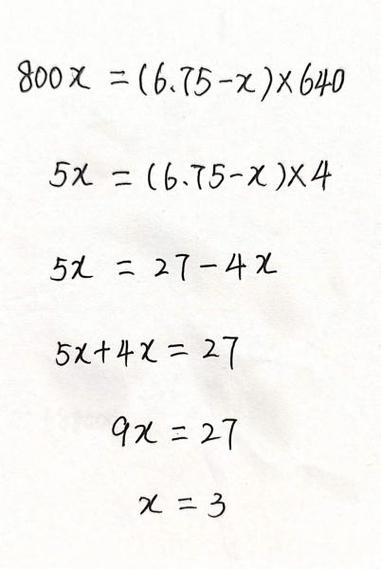 800x = (6.75-x)×640
5x = (6.75-x)×4
5x = 27-4x
5x+4x = 27
9x = 27
x = 3